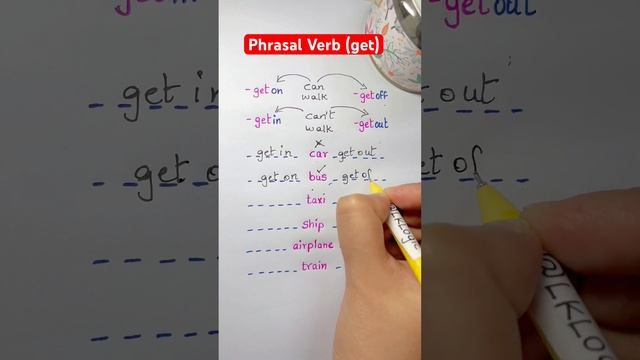 Phrasal Verb (get)
- get on can walk - get off
- get in can't walk - get out
get in car get out
get on bus get of
taxi
ship
airplane
train
@LKLogic